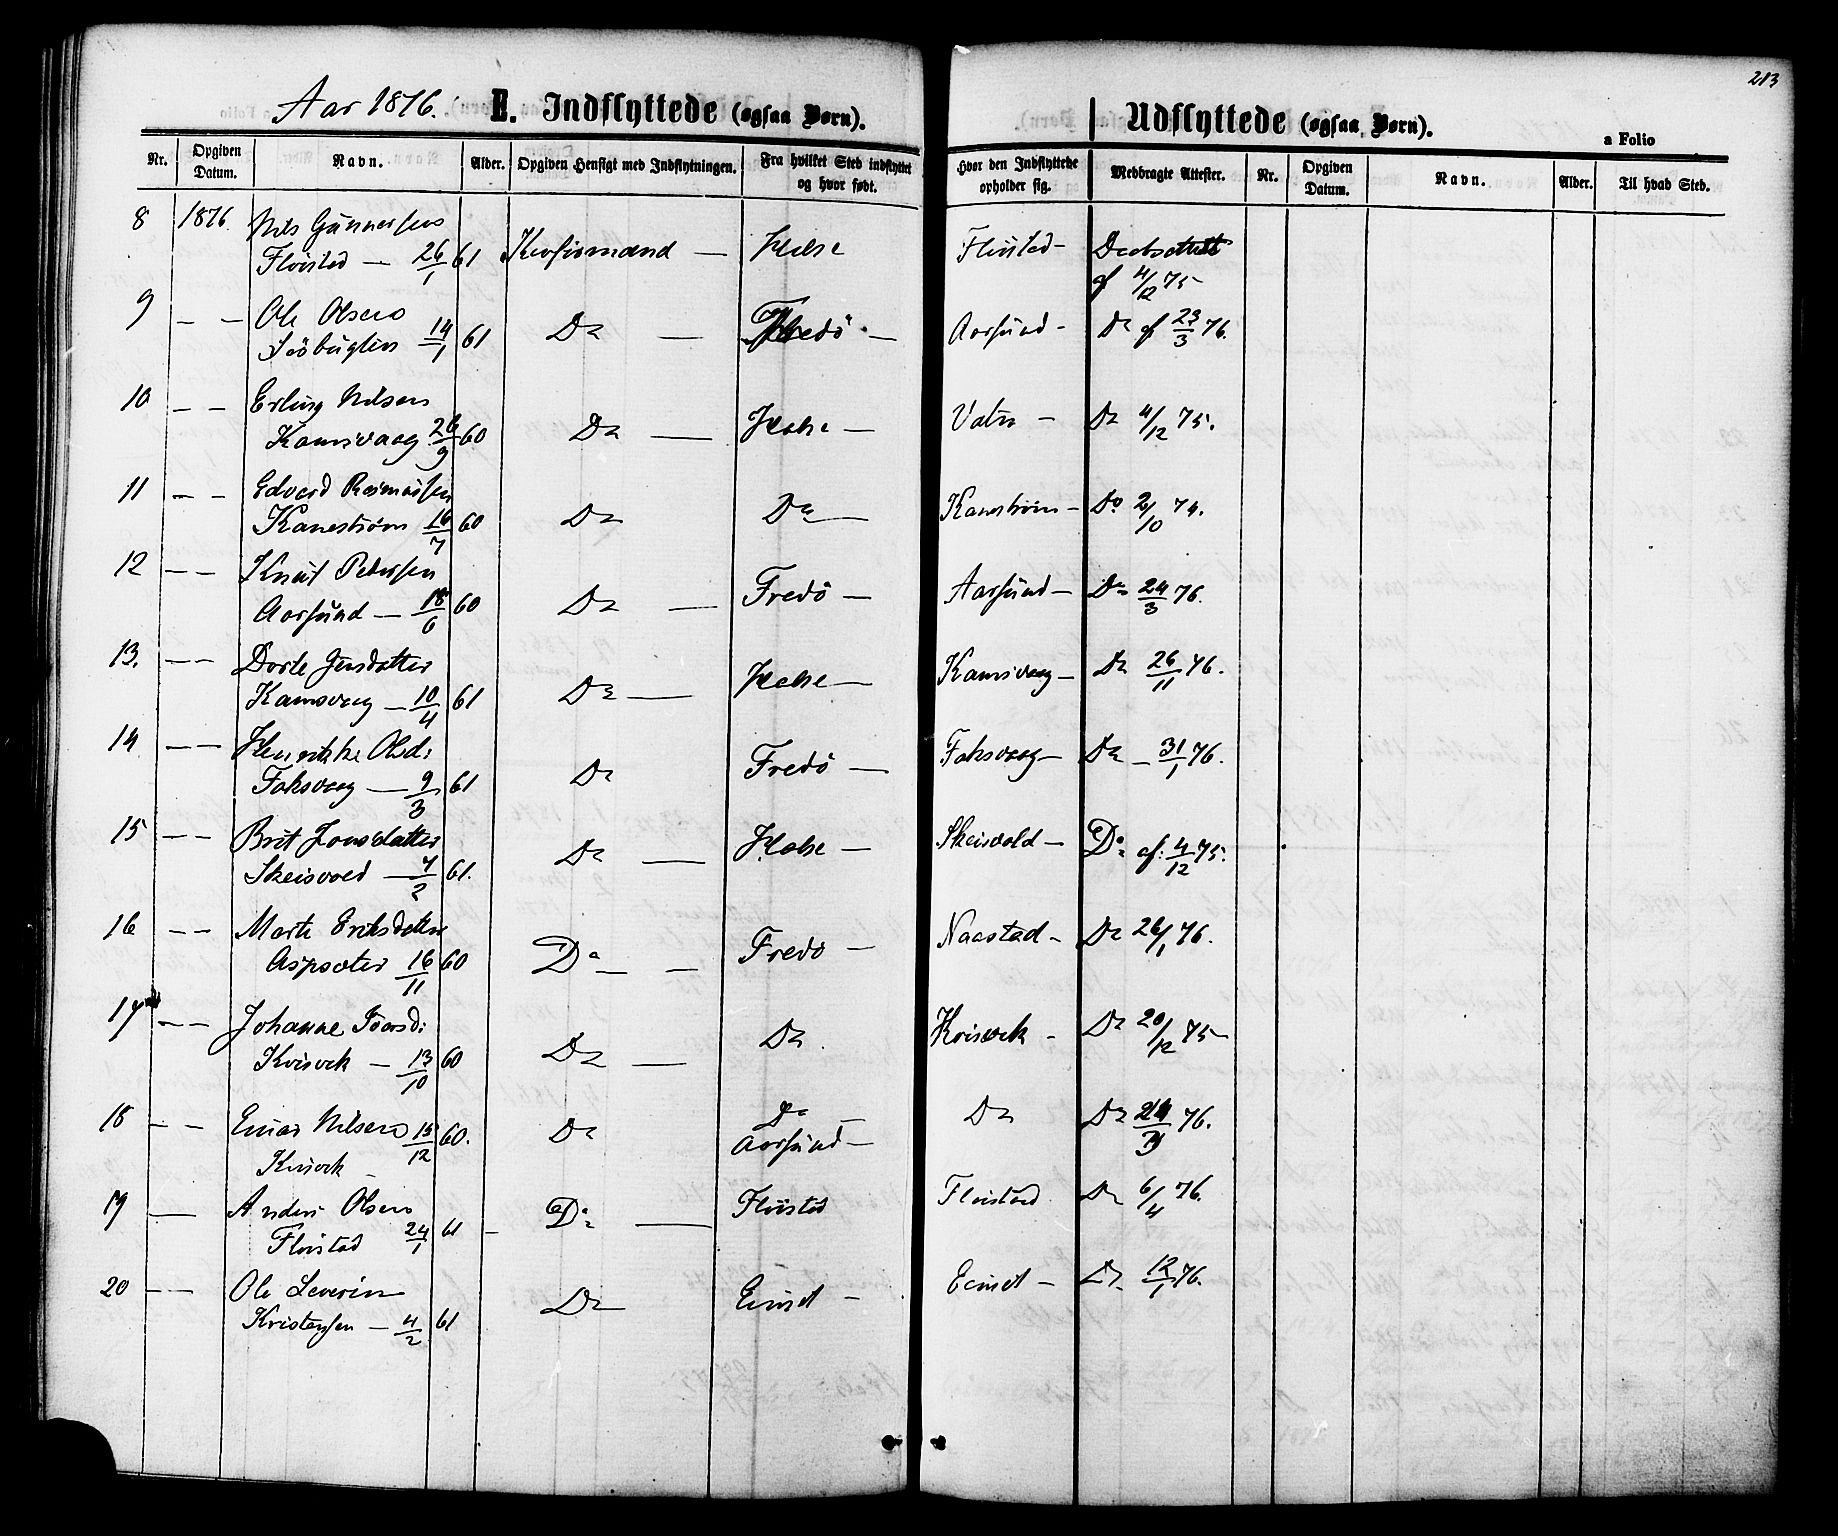 213
Aar 1876. E. Indflyttede (ogsaa Børn).
Udflyttede (ogsaa Børn).
a Folio
Nr. Opgiven Datum. Navn. Alder. Opgiven Hensigt med Indflytningen. Fra hvilket Sted indflyttet og hvor født. Hvor den Indflyttede opholder sig. Medbragte Attester. Nr. Opgiven Datum. Navn. Alder. Til hvad Sted.
8 1876. Nils Gunnersen
Fløistad — 26/1 61 — Halse Fløistad — af 4/12 75
9 — — Ole Olsen
14/1 61 Do — Fredö — Aarsund — Do af 23/3 76.
10 — — Erling Nilsen
Kamsvaag 26/9 60 Do — Halse — Vatn — Do 4/12 75.
11 — — Edvard Rasmussen
Kanestrøm 16/7 60 Do Do — Kanestrøm — Do 2/10 74.
12 — — Knut Petersen
Aarsund — 18/6 60 Do — Fredö — Aarsund — Do 24/3 76.
13. — — Dorte Jensdatter
Kamsvaag — 10/4 61 Do — Halse — Kamsvaag — Do 26/11 76.
14 — — Henrikke Olsd:
Foksvaag — 9/3 61 Do Fredö — Foksvaag — Do — 31/1 76.
15 — — Brit Jonsdatter
Skeisvold — 7/2 61. Do — Halse — Skeisvold — Do af: 4/12 75.
16 — — Marte Eriksdatter
Aspsæter 16/11 60 Do — — Fredö — Naastad — Do 26/1 76.
17 — — Johanne
Kvisvik — 13/10 60 Do — Do Kvisvik — Do 20/12 75
18 — — Einar Nilsen 15/12 60. Do Do Do Do 76.
Kvisvik Aarsund —
19 — Anders Olsen
Fløistad 24/1 61 — Do — Fløistad Fløistad Do 6/4 76.
20 — — Ole Severin
Kristensen — 4/2 61 Do Einset — Einset — Do 12/1 76.